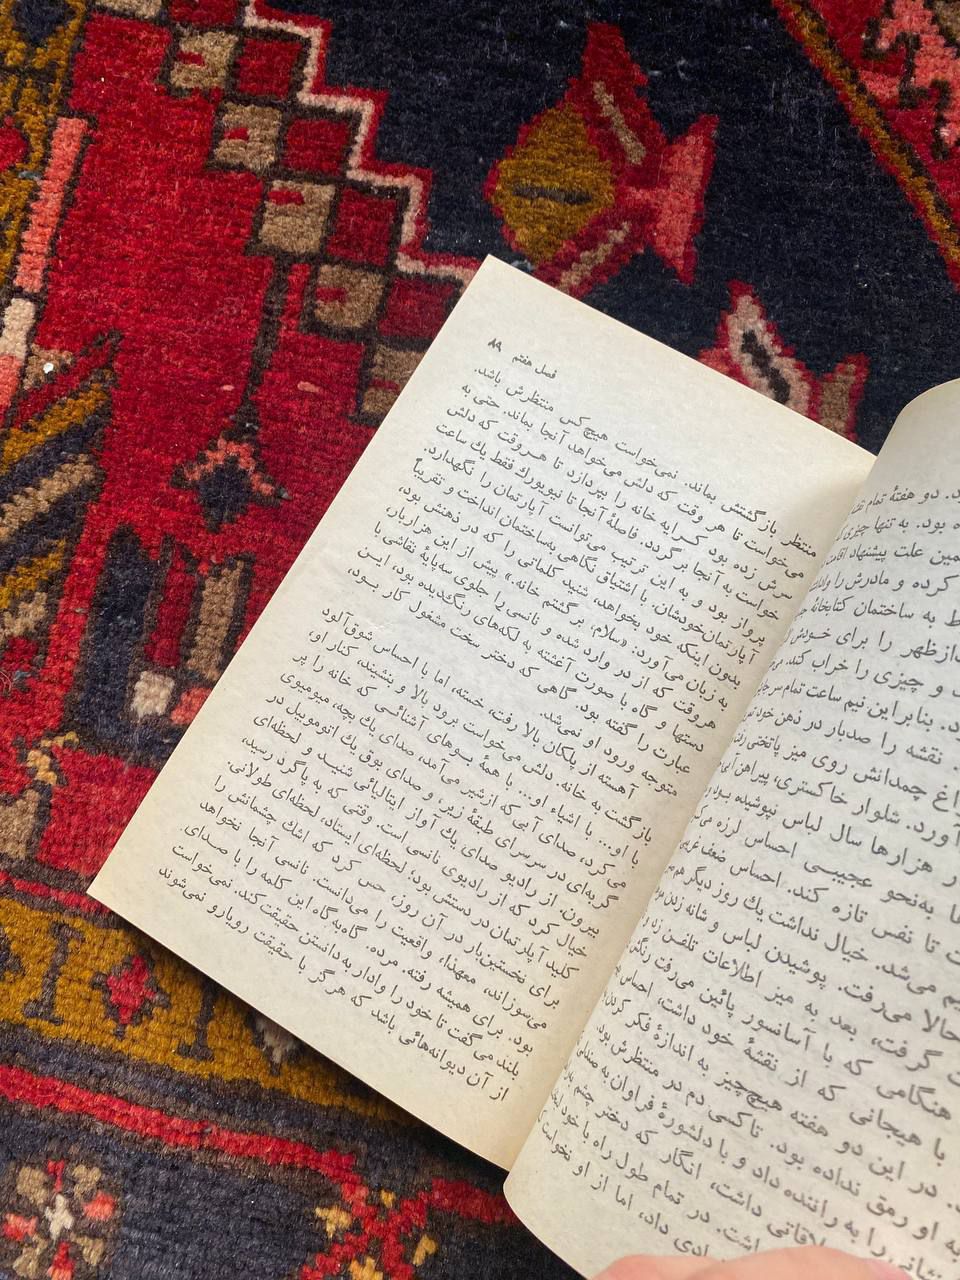 دو هفتهٔ تمام
بود. به تنها چیزی
علت پیشنهاد اقامت
کرده و مادرش را
به ساختمان کتابخانهٔ
را برای خودش
و چیزی را خراب کند.
بنابراین نیم ساعت تمام سر
نقشه را صدبار در ذهن خود
چمدانش روی میز پاتختی
آورد. شلوار خاکستری، پیراهن
هزارها سال لباس نپوشیده
به‌نحو عجیبی احساس لرزه
تا نفس تازه کند. احساس ضعف
می‌شد. خیال نداشت یك روز دیگر هم
حالا می‌رفت. پوشیدن لباس و شانه زدن
گرفت، بعد به میز اطلاعات تلفن زد
هنگامی که با آسانسور پائین می‌رفت
با هیجانی که از نقشهٔ خود داشت، احساس
در این دو هفته هیچ‌چیز به اندازهٔ فکر
به او رمق نداده بود. تاکسی دم در منتظرش بود.
نشانی را به راننده داد و با دلشورهٔ فراوان به
داشت، انگار که دختر چشم
در تمام طول راه با خود
داد، اما از او نخواست
فصل هفتم ۸۹
منتظر بازگشتش بماند. نمی‌خواست هیچ‌کس منتظرش باشد.
می‌خواست تا هر وقت که دلش می‌خواهد آنجا بماند. حتی به
سرش زده بود کرایه خانه را بپردازد تا هروقت که دلش
خواست به آنجا برگردد. فاصلهٔ آنجا تا نیویورك فقط یك ساعت
پرواز بود و به این ترتیب می‌توانست آپارتمان را نگهدارد.
آپارتمان‌خودشان. با اشتیاق نگاهی به‌ساختمان انداخت و تقریباً
بدون اینکه خود بخواهد، شنید کلماتی را که در ذهنش بود،
به زبان می‌آورد. «سلام، برگشتم خانه.» پیش از این هزاربار،
هروقت که از در وارد شده و نانسی را جلوی سه‌پایهٔ نقاشی با
دستها و گاه با صورت آغشته به لکه‌های رنگ‌دیده بود، این
عبارت را گفته بود. گاهی که دختر سخت مشغول کار بود،
متوجه ورود او نمی‌شد.
آهسته از پلکان بالا رفت، خسته، اما با احساس شوق‌آلود
بازگشت به خانه. دلش می‌خواست برود بالا و بنشیند، کنار او،
با او... با اشیاء او... با همهٔ بوهای آشنائسی که خانه را پر
می‌کرد، صدای آبی که ازشیر می‌آمد، صدای یك بچه، میومیوی
گربه‌ای در سرسرای طبقهٔ زیر، و صدای بوق یك اتومبیل در
بیرون. از رادیو صدای یك آواز ایتالیائی شنید و لحظه‌ای
خیال کرد که از رادیوی نانسی است. وقتی که به پاگرد رسید،
کلید آپارتمان در دستش بود؛ لحظه‌ای ایستاد، لحظه‌ای طولانی.
برای نخستین‌بار در آن روز، حس کرد که اشك چشمانش را
می‌سوزاند، معهذا، واقعیت را می‌دانست. نانسی آنجا نخواهد
بود. برای همیشه رفته. مرده. گاه‌به‌گاه این کلمه را با صدای.
بلند می‌گفت تا خود را وادار به‌دانستن حقیقت کند. نمی‌خواست
از آن دیوانه‌هائی باشد که هرگز با حقیقت رویارو نمی‌شوند